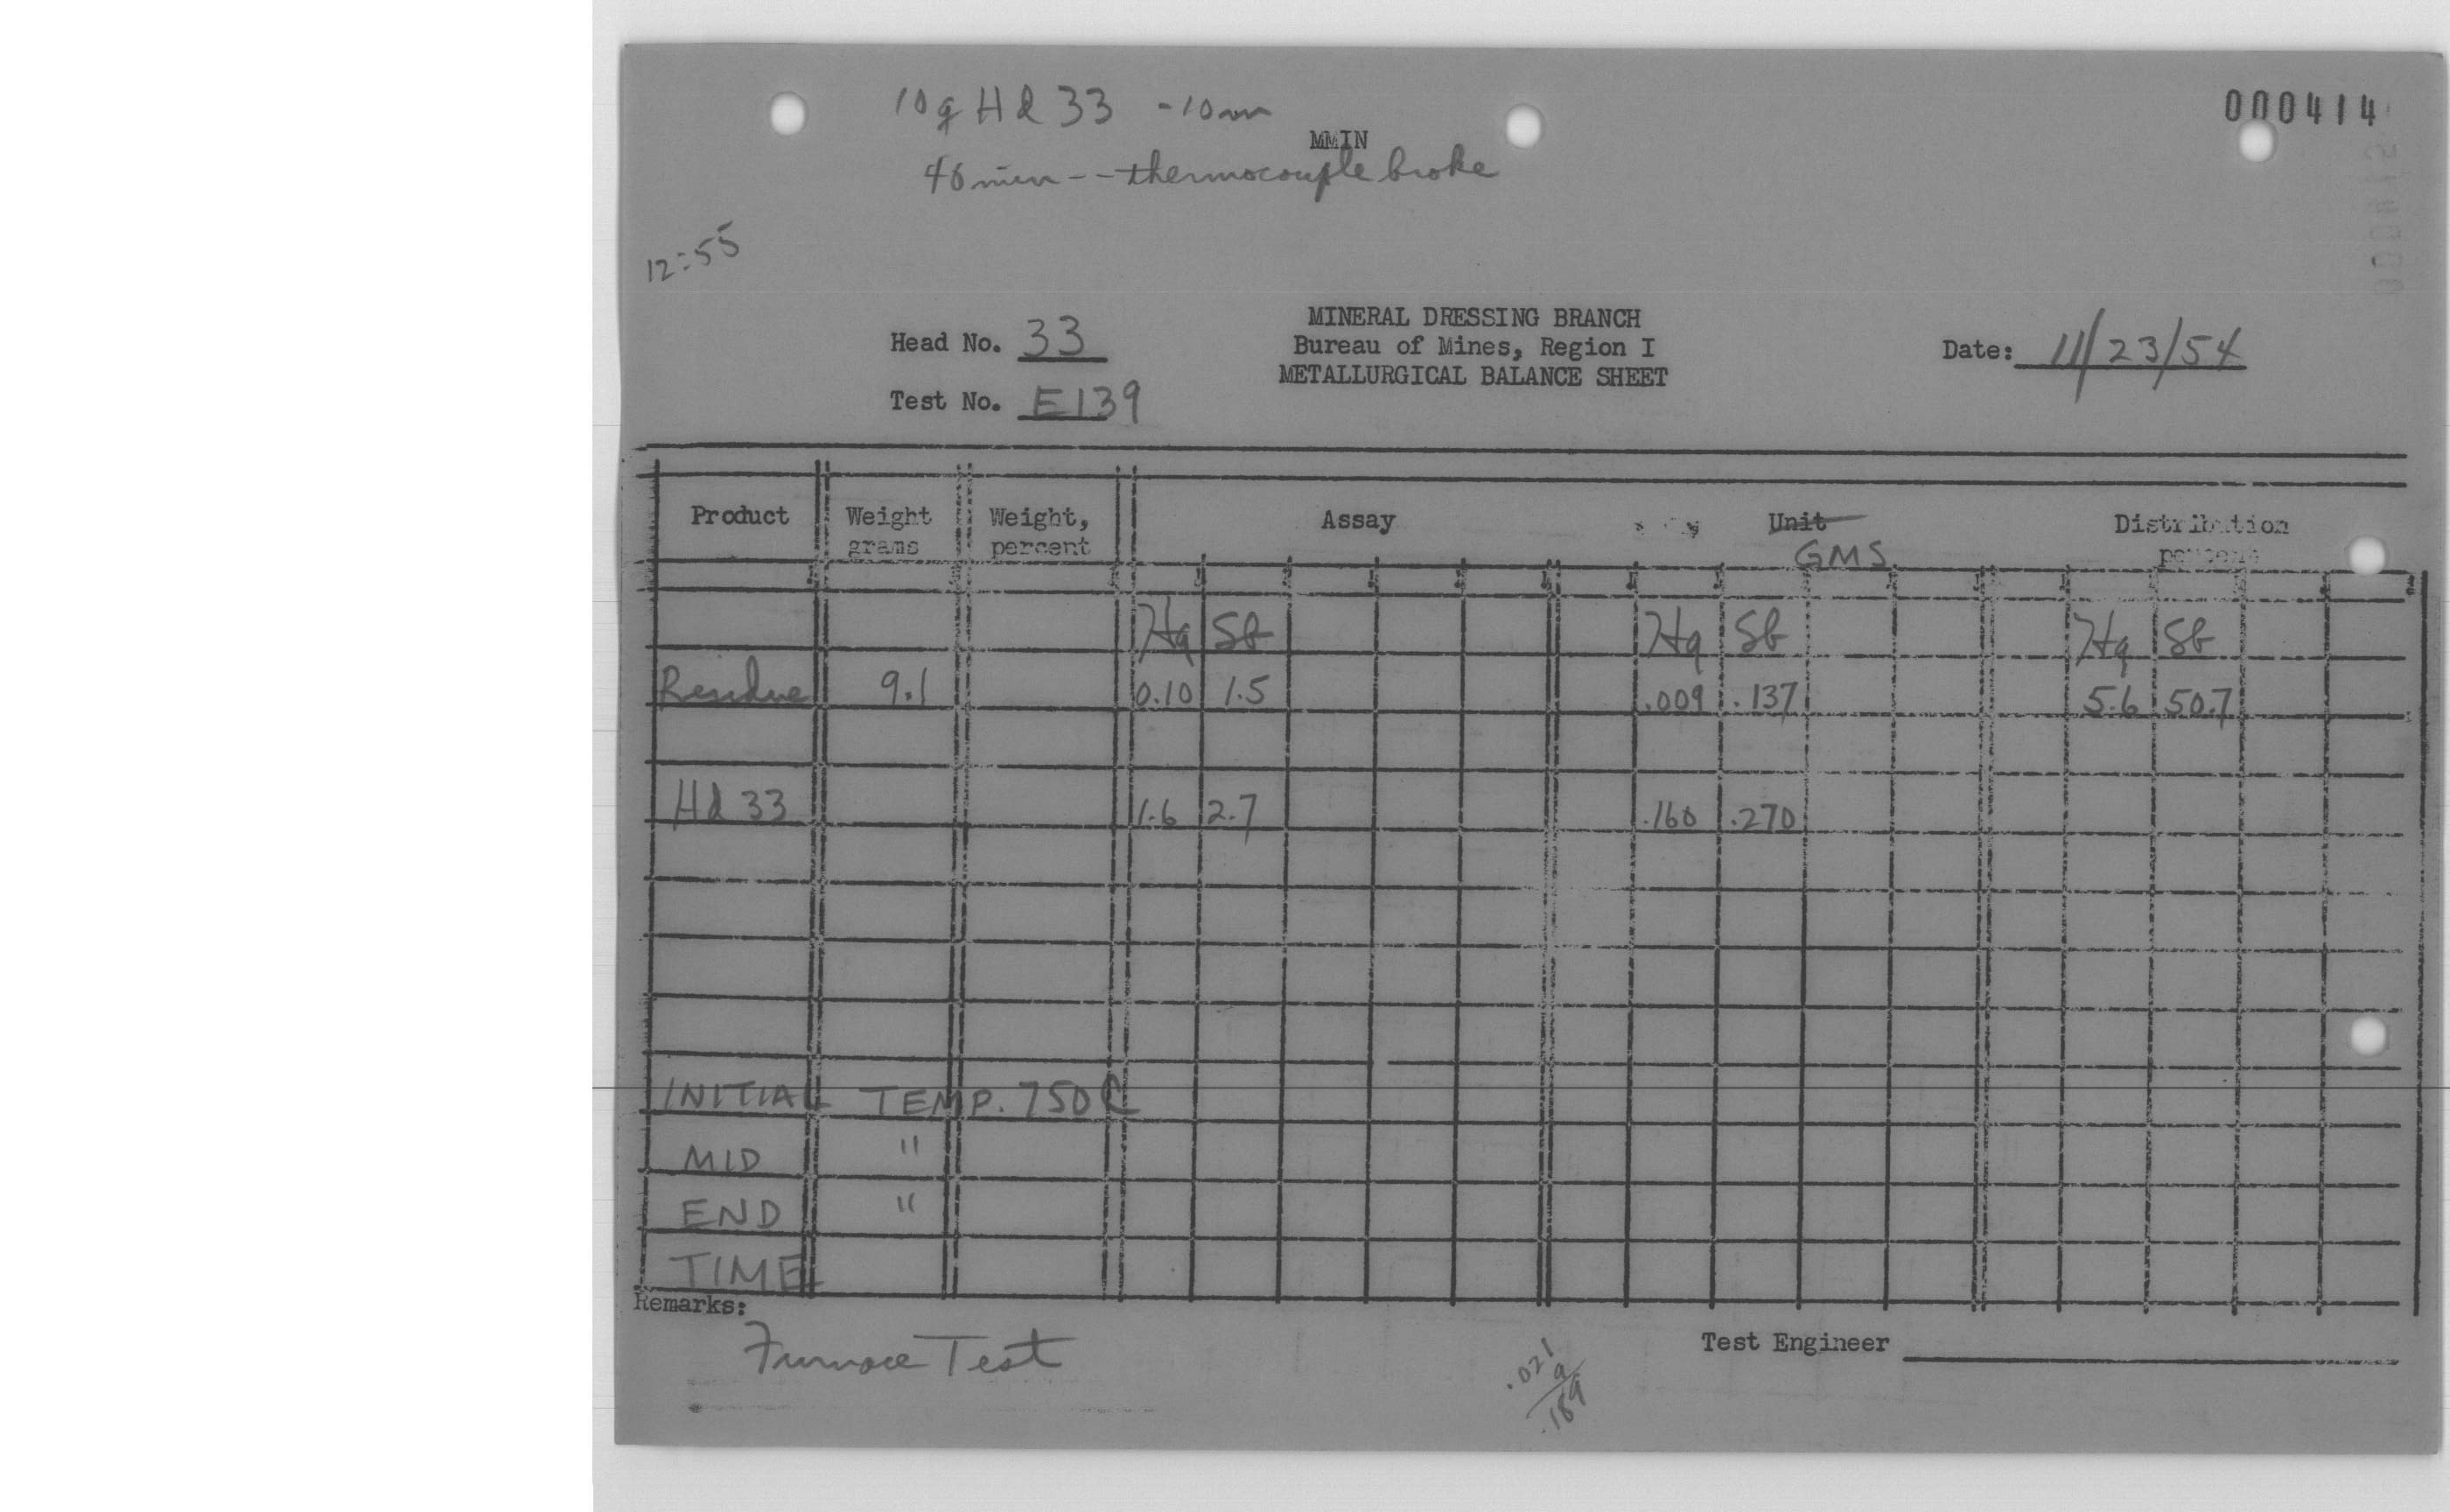 000414
10g Hd 33 -10m
MMIN
40 min -- thermocouple broke
12:55
Head No. 33
Test No. E139
MINERAL DRESSING BRANCH
Bureau of Mines, Region I
METALLURGICAL BALANCE SHEET
Date: 11/23/54
Product Weight grams Weight, percent Assay Unit GMS Distribution percent
Hg Sb Hg Sb Hg Sb
Residue 9.1 0.10 1.5 .009 .137 5.6 50.7
Hd 33 1.6 2.7 .160 .270
INITIAL TEMP. 750 C
MID "
END "
TIME
Remarks:
Furnace Test
Test Engineer
.021
9
.189